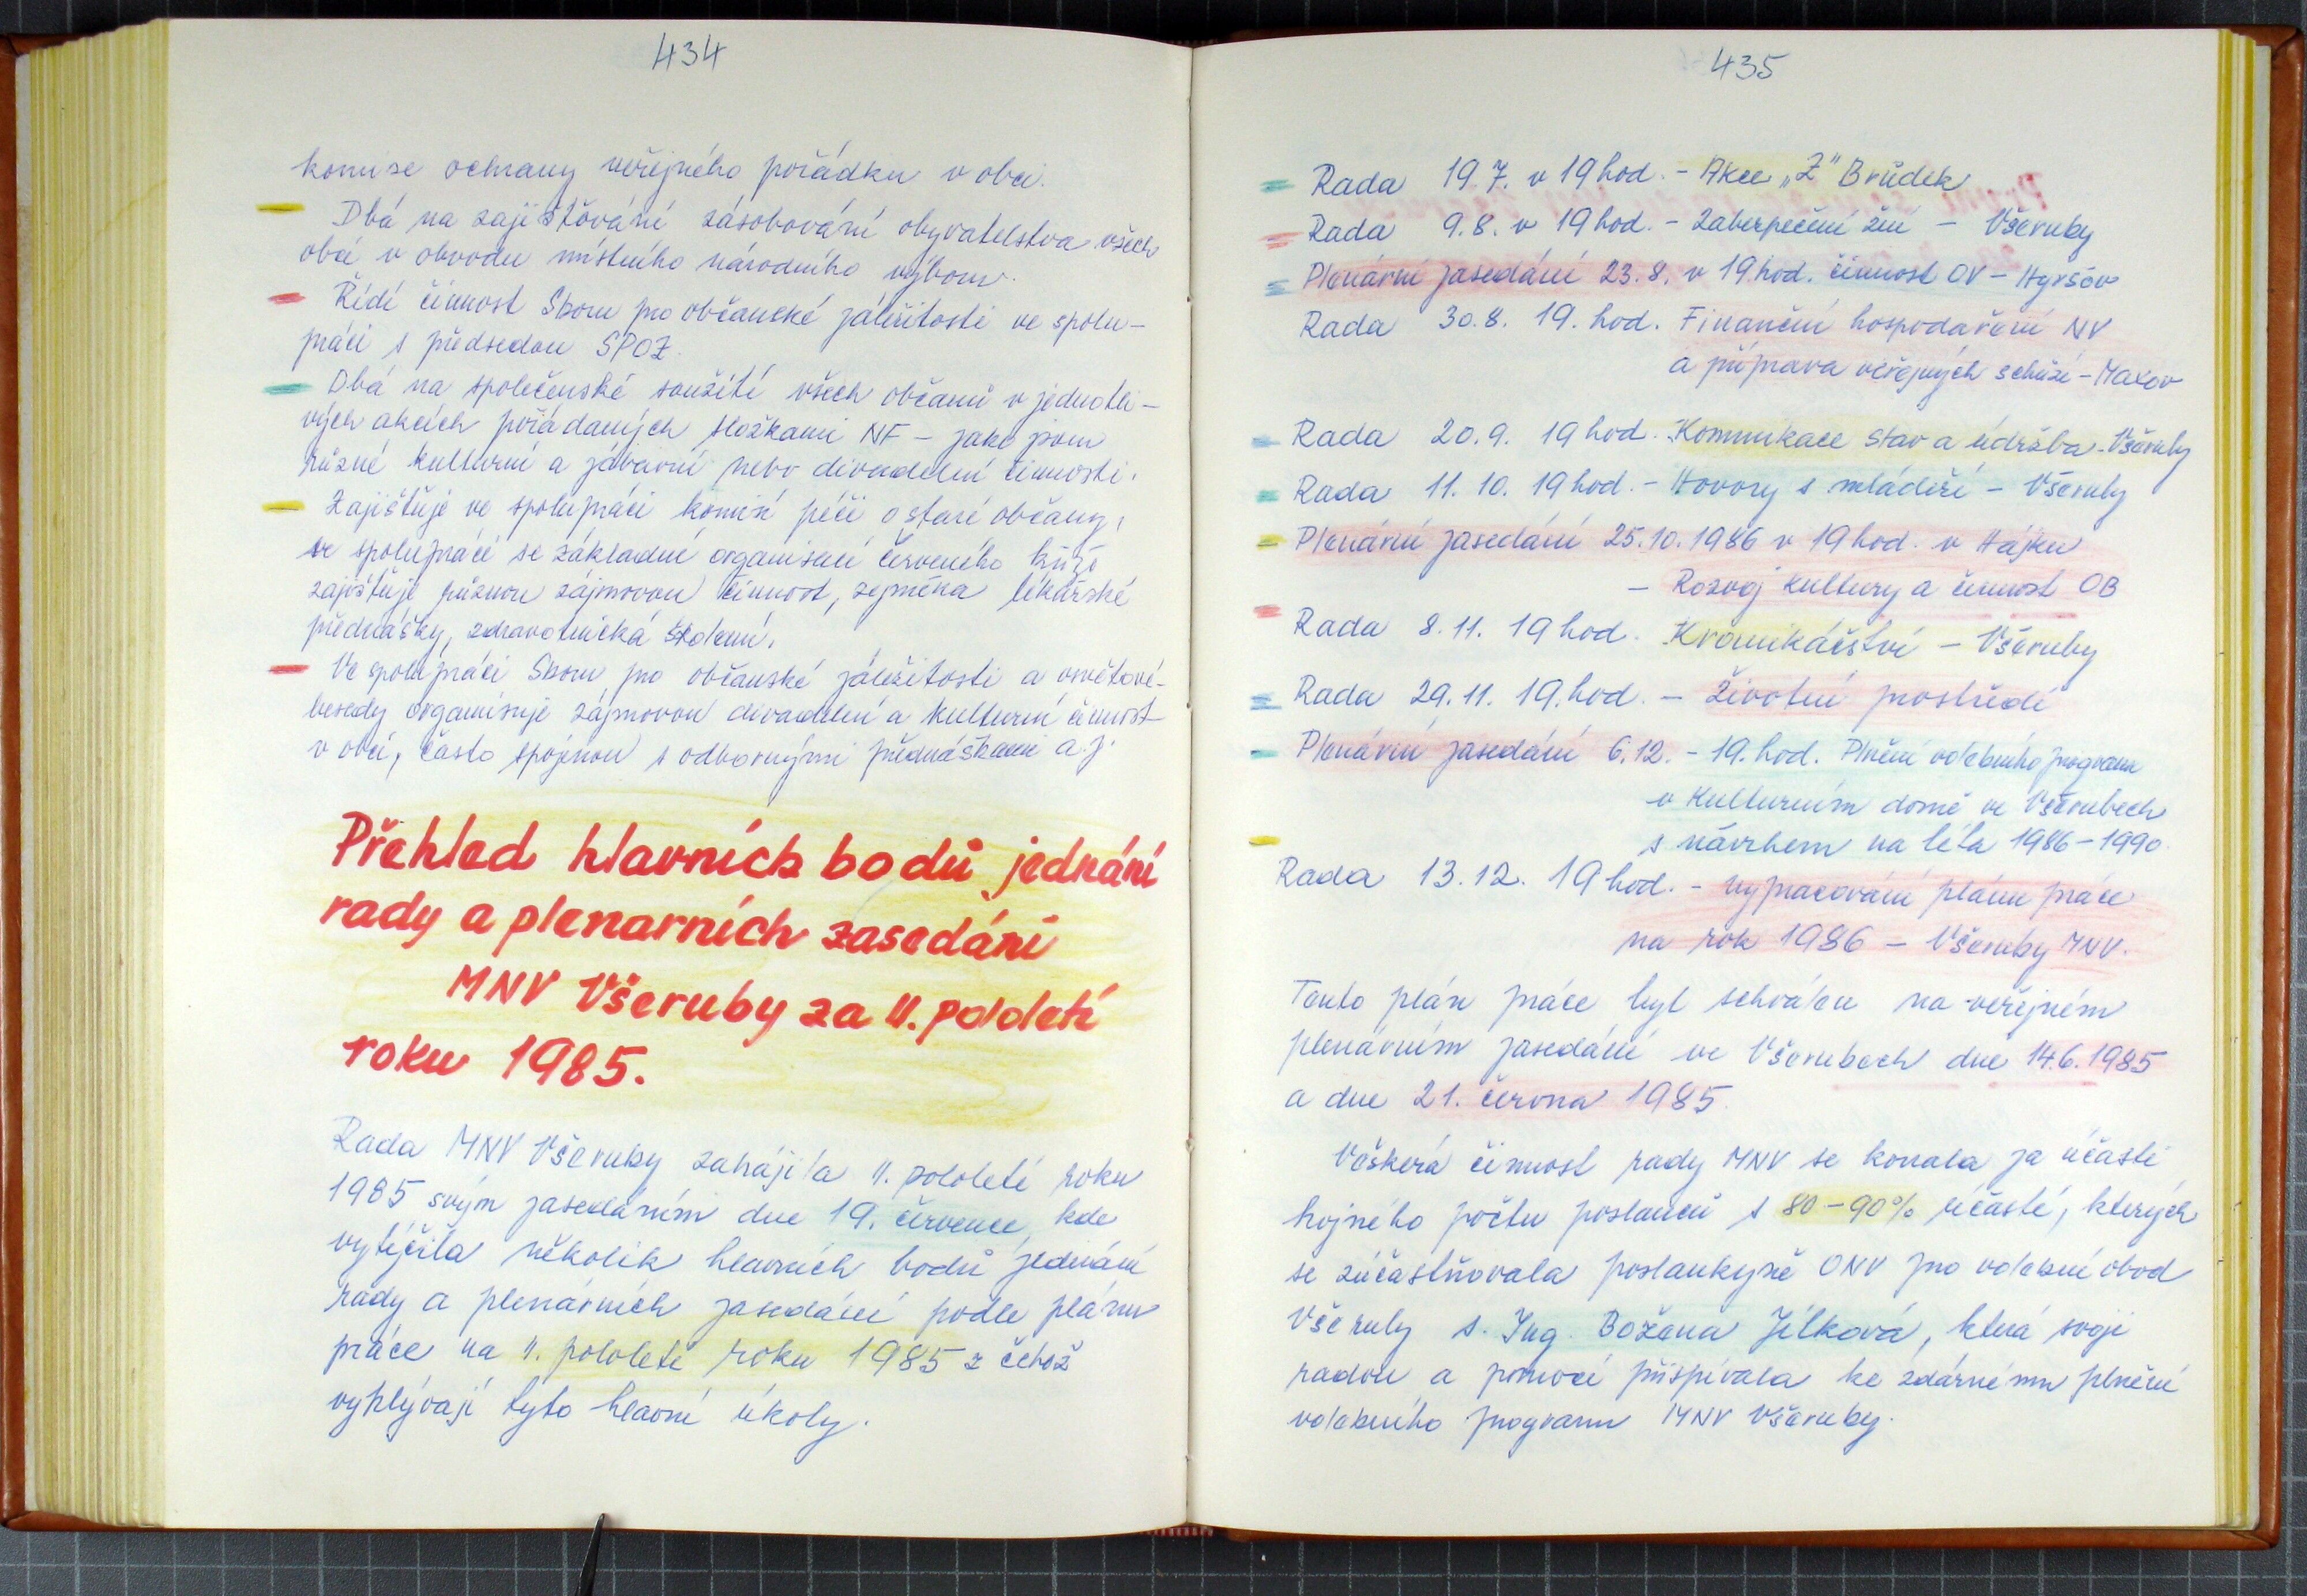 434
komise ochrany veřejného pořádku v obci.
Dbá na zajištování zásobování obyvatelstva všech
obcí v obvodu místního národního výboru.
Řídí činnost Sboru pro občanské záležitosti ve spolu-
práci s předsedou SPOZ.
Dbá na společenské soužití všech občanů v jednotli-
vých akcích pořádaných složkami NF - jako jsou
různé kulturní a zábavní nebo divadelní činnosti.
Zajištuje ve spolupráci komisí péči o staré občany,
ve spolupráci se základní organisací červeného kříže
zajištuje různou zájmovou činnost, zejména lékařské
přednášky, zdravotnická školení.
Ve spolupráci Sboru pro občanské záležitosti a osvětové-
besedy organisuje zájmovou divadelní a kulturní činnost
v obci, často spojenou s odbornými přednáškami a.j.
Přehled hlavních bodů jednání
rady a plenarních zasedání
MNV Všeruby za II. pololetí
roku 1985.
Rada MNV Všeruby zahájila II. pololetí roku
1985 svým zasedáním dne 19. července, kde
vytýčila několik hlavních bodů jednání
rady a plenárních zasedání podle plánu
práce na II. pololetí roku 1985 z čehož
vyplývají tyto hlavní úkoly.
435
Rada 19.7. v 19 hod. - Akce „Z" Brůdek
Rada 9.8. v 19 hod. - Zabezpečení žní - Všeruby
Plenární zasedání 23.8. v 19 hod. činnost OV - Hyršov
Rada 30.8. 19. hod. Finanční hospodaření NV
a příprava veřejných schůzí - Maxov
Rada 20.9. 19 hod. Komunikace stav a údržba - Všeruby
Rada 11.10. 19 hod. - Hovory s mládeží - Všeruby
Plenární zasedání 25.10.1986 v 19 hod. v Hájku
- Rozvoj kultury a činnost OB
Rada 8.11. 19 hod. Kronikářství - Všeruby
Rada 29.11. 19. hod. - životní prostředí
Plenární zasedání 6.12. - 19. hod. Plnění volebního programu
v Kulturním domě ve Všerubech
s návrhem na léta 1986 - 1990.
Rada 13.12. 19 hod. - vypracování plánu práce
na rok 1986 - Všeruby MNV.
Tento plán práce byl schválen na veřejném
plenárním zasedání ve Všerubech dne 14.6.1985
a dne 21. června 1985.
Veškerá činnost rady MNV se konala za účasti
hojného počtu poslanců s 80 - 90% účastí, kterých
se zúčastňovala poslankyně ONV pro volební obvod
Všeruby s. Ing. Božena Jílková, která svojí
radou a pomocí přispívala ke zdárnému plnění
volebního programu MNV Všeruby.